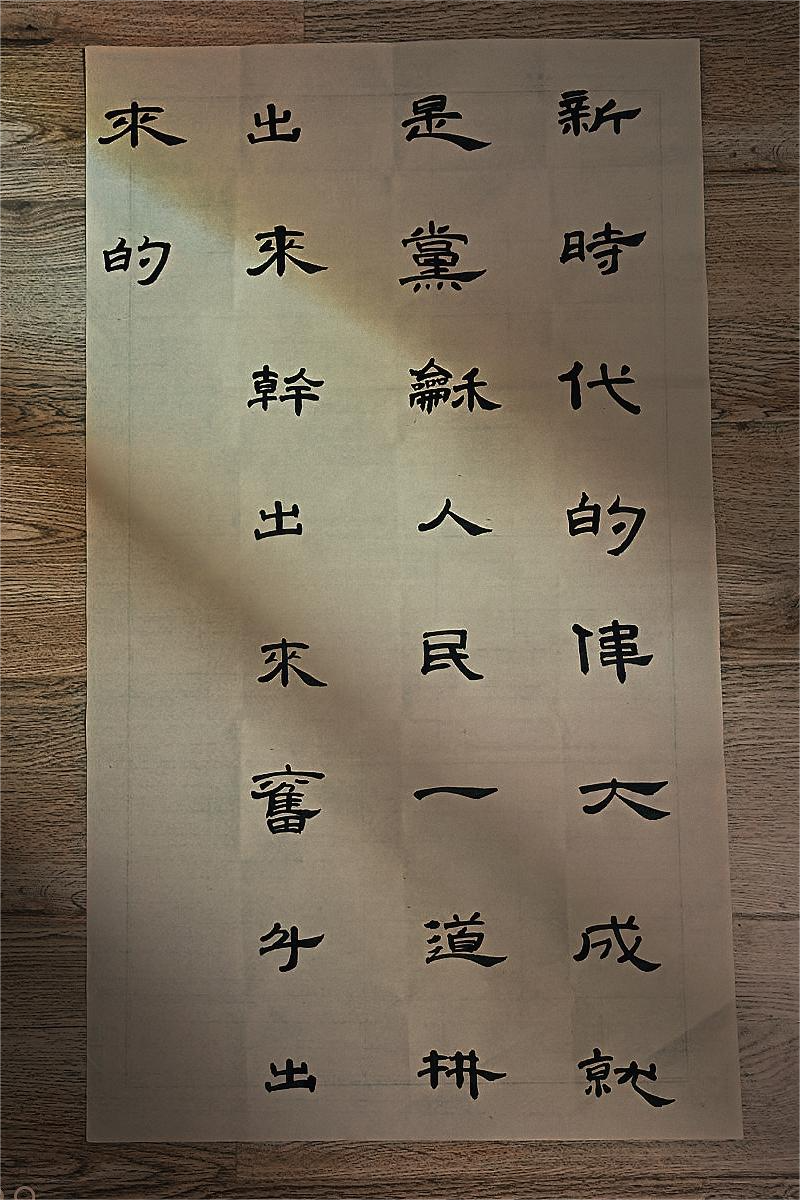 新時代的偉大成就
是黨龢人民一道拼
出來幹出來奮斗出
來的